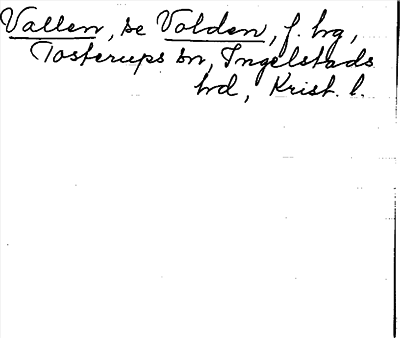 Vallen, se Volden, f. hg,
Tosterups sn, Ingelstads
hd, Krist. l.